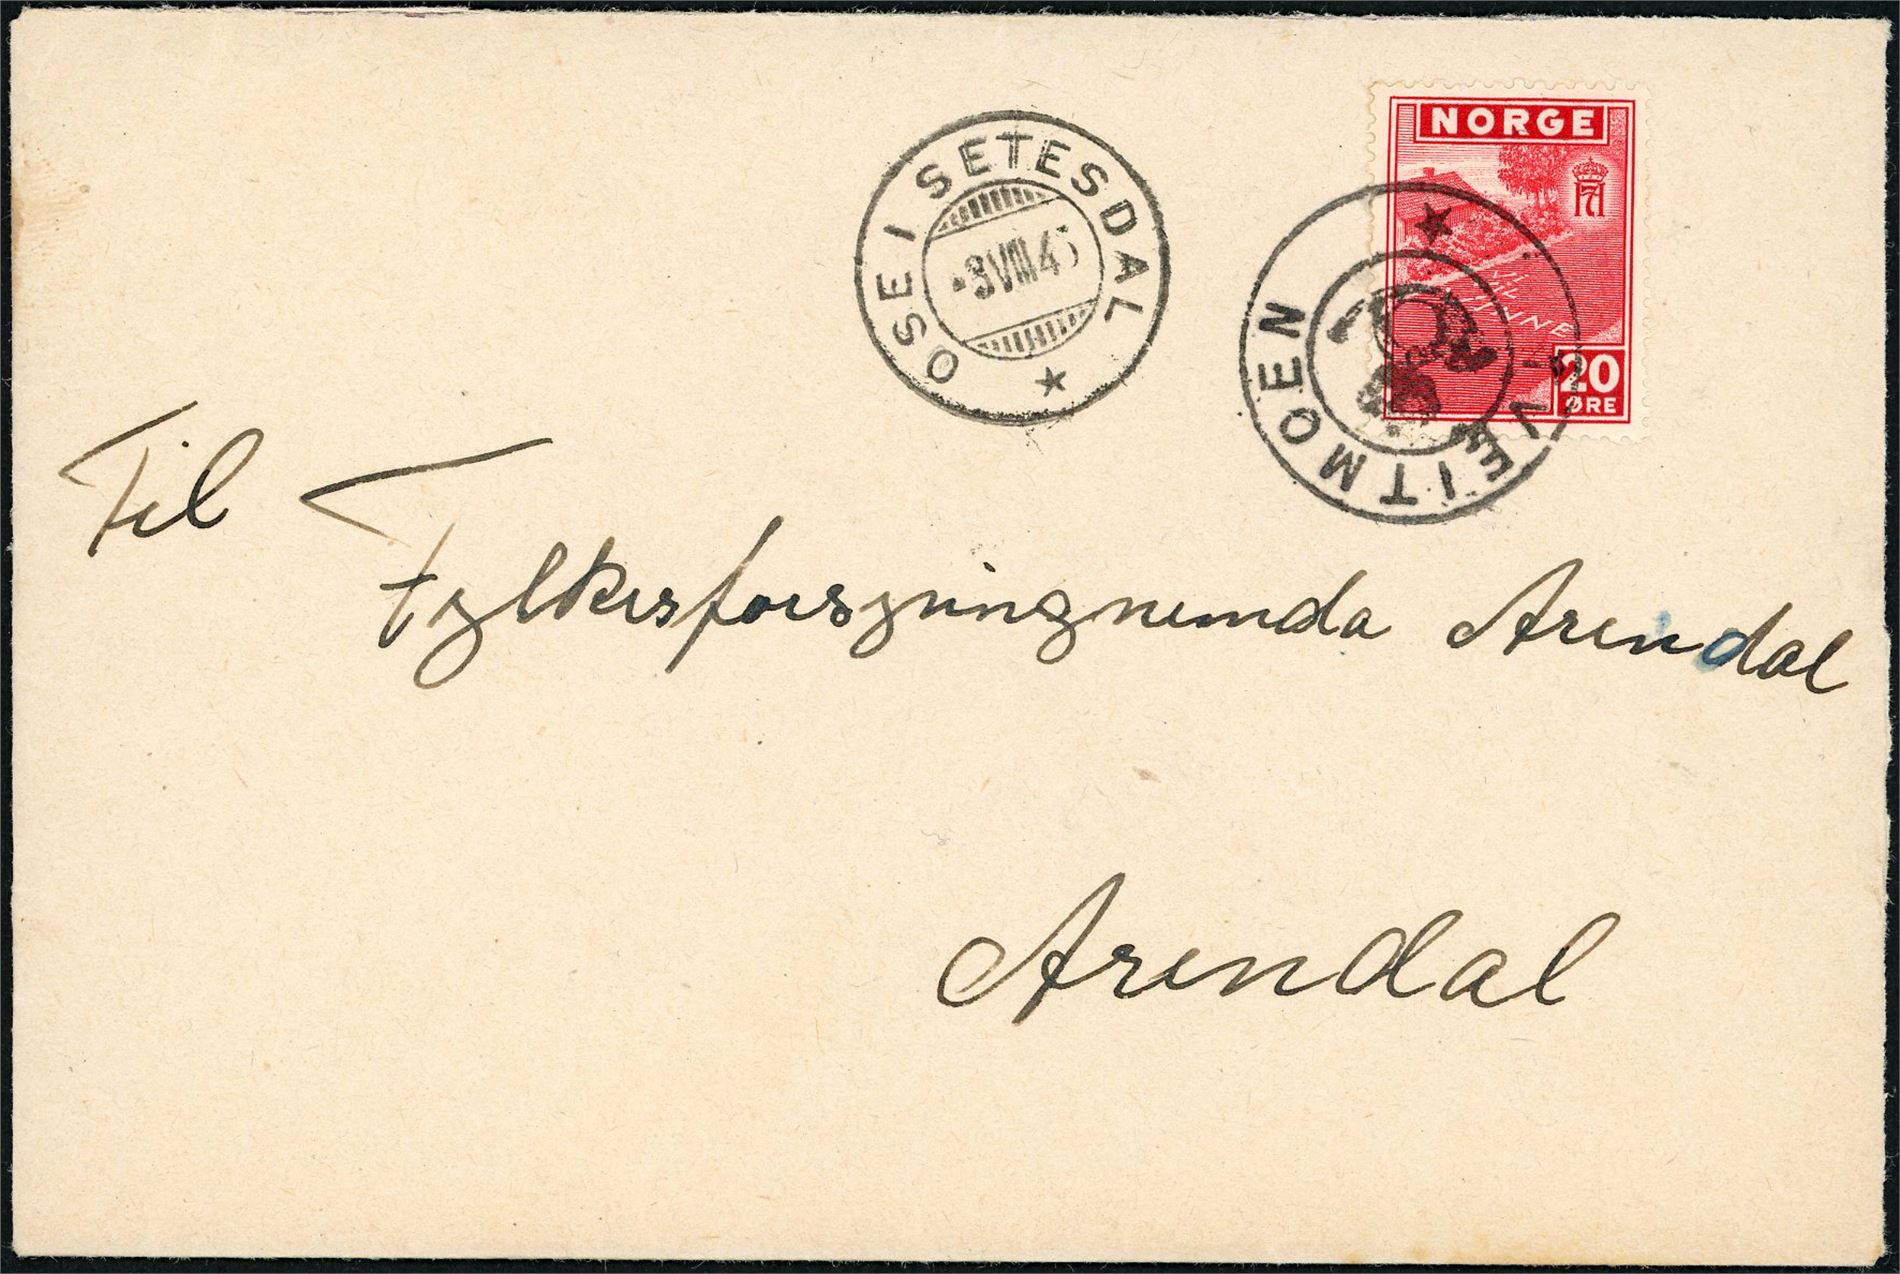 NORGE
VI VIL VINNE
20
ØRE
OSE I SETESDAL
-3 VIII 45
TVEITMOEN
Til
Fylkesforsyningnemda Arendal
Arendal